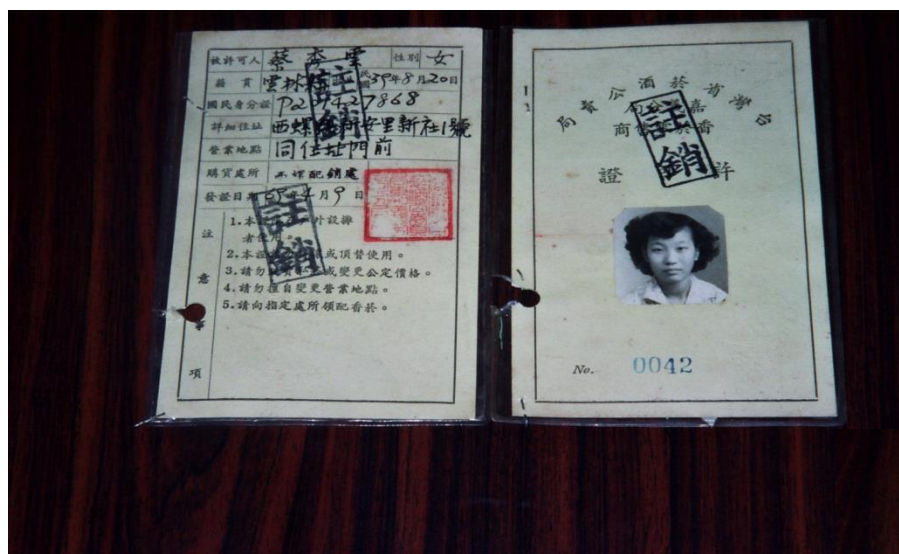 被許可人 蔡 雲 性別 女
籍貫 雲林 民國39年8月20日
國民身分證
詳細住址 西螺 安里新社1號
營業地點 同住址門前
購貨處所 配銷處
發證日期 年4月9日
註銷
註銷
注意事項
1.本 外設攤
者使用。
2.本證 或頂替使用。
3.請勿 或變更公定價格。
4.請勿擅自變更營業地點。
5.請向指定處所領配香菸。
台灣省菸酒公賣局
嘉 分局
香菸 商
許 證
註銷
No. 0042